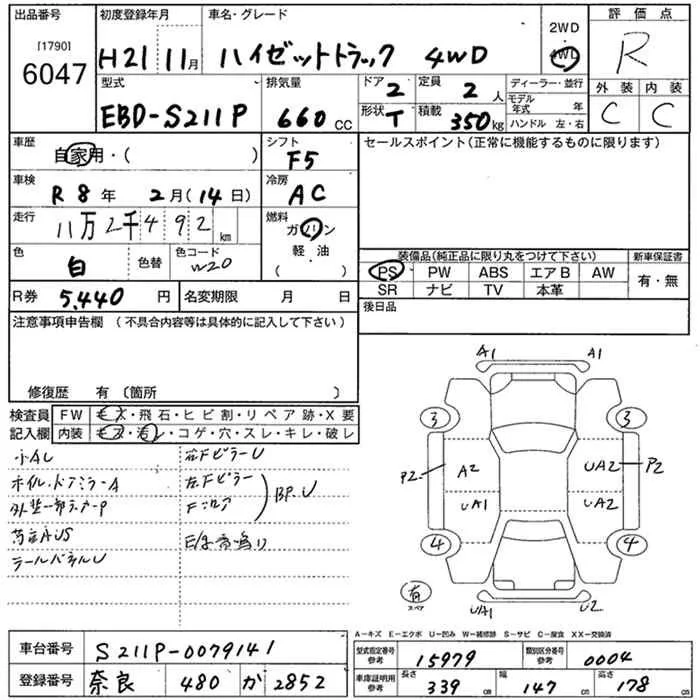 出品番号
[1790]
6047
初度登録年月
H21 11月
車名・グレード
ハイゼットトラック 4WD
2WD
4WD
評価点
R
外装 内装
C C
型式
EBD-S211P
排気量
660 CC
ドア 2
形状 T
定員 2 人
積載 350 kg
ディーラー・並行
モデル年式 年
ハンドル 左・右
車歴
自家用・( )
シフト
F5
車検
R8年 2月(14日)
冷房
AC
走行
11万2千492 km
燃料
ガソリン
軽・油
( )
色
白
色替
色コード
W20
R券 5,440 円
名変期限 月 日
セールスポイント(正常に機能するものに限ります)
装備品(純正品に限り丸をつけて下さい)
PS PW ABS エアB AW
SR ナビ TV 本革
新車保証書
有・無
後日品
注意事項申告欄 (不具合内容等は具体的に記入して下さい)
修復歴 有 〔箇所 〕
検査員記入欄
FW モス・飛石・ヒビ割・リペア跡・X要
内装 モス・汚レ・コゲ・穴・スレ・キレ・破レ
小AU
ホイル、ドアミラーA
外装一部ステッカーP
荷台AUS
テールパネルU
右Fピラー U
左Fピラー
Fフロア
BP、U
E/G異音鳴り
A1 A1
3 3
P2 A2 UA2 P2
UA1 UA2
4 4
有
スペア
UA1 U2
A―キズ E―エクボ U―凹み W―補修跡 S―サビ C―腐食 XX―交換済
車台番号 S211P-0079141
登録番号 奈良 480 か 2852
型式指定番号
参考
15979
類別区分番号
参考
0004
車庫証明用
参考
長さ 339 cm
幅 147 cm
高さ 178 cm